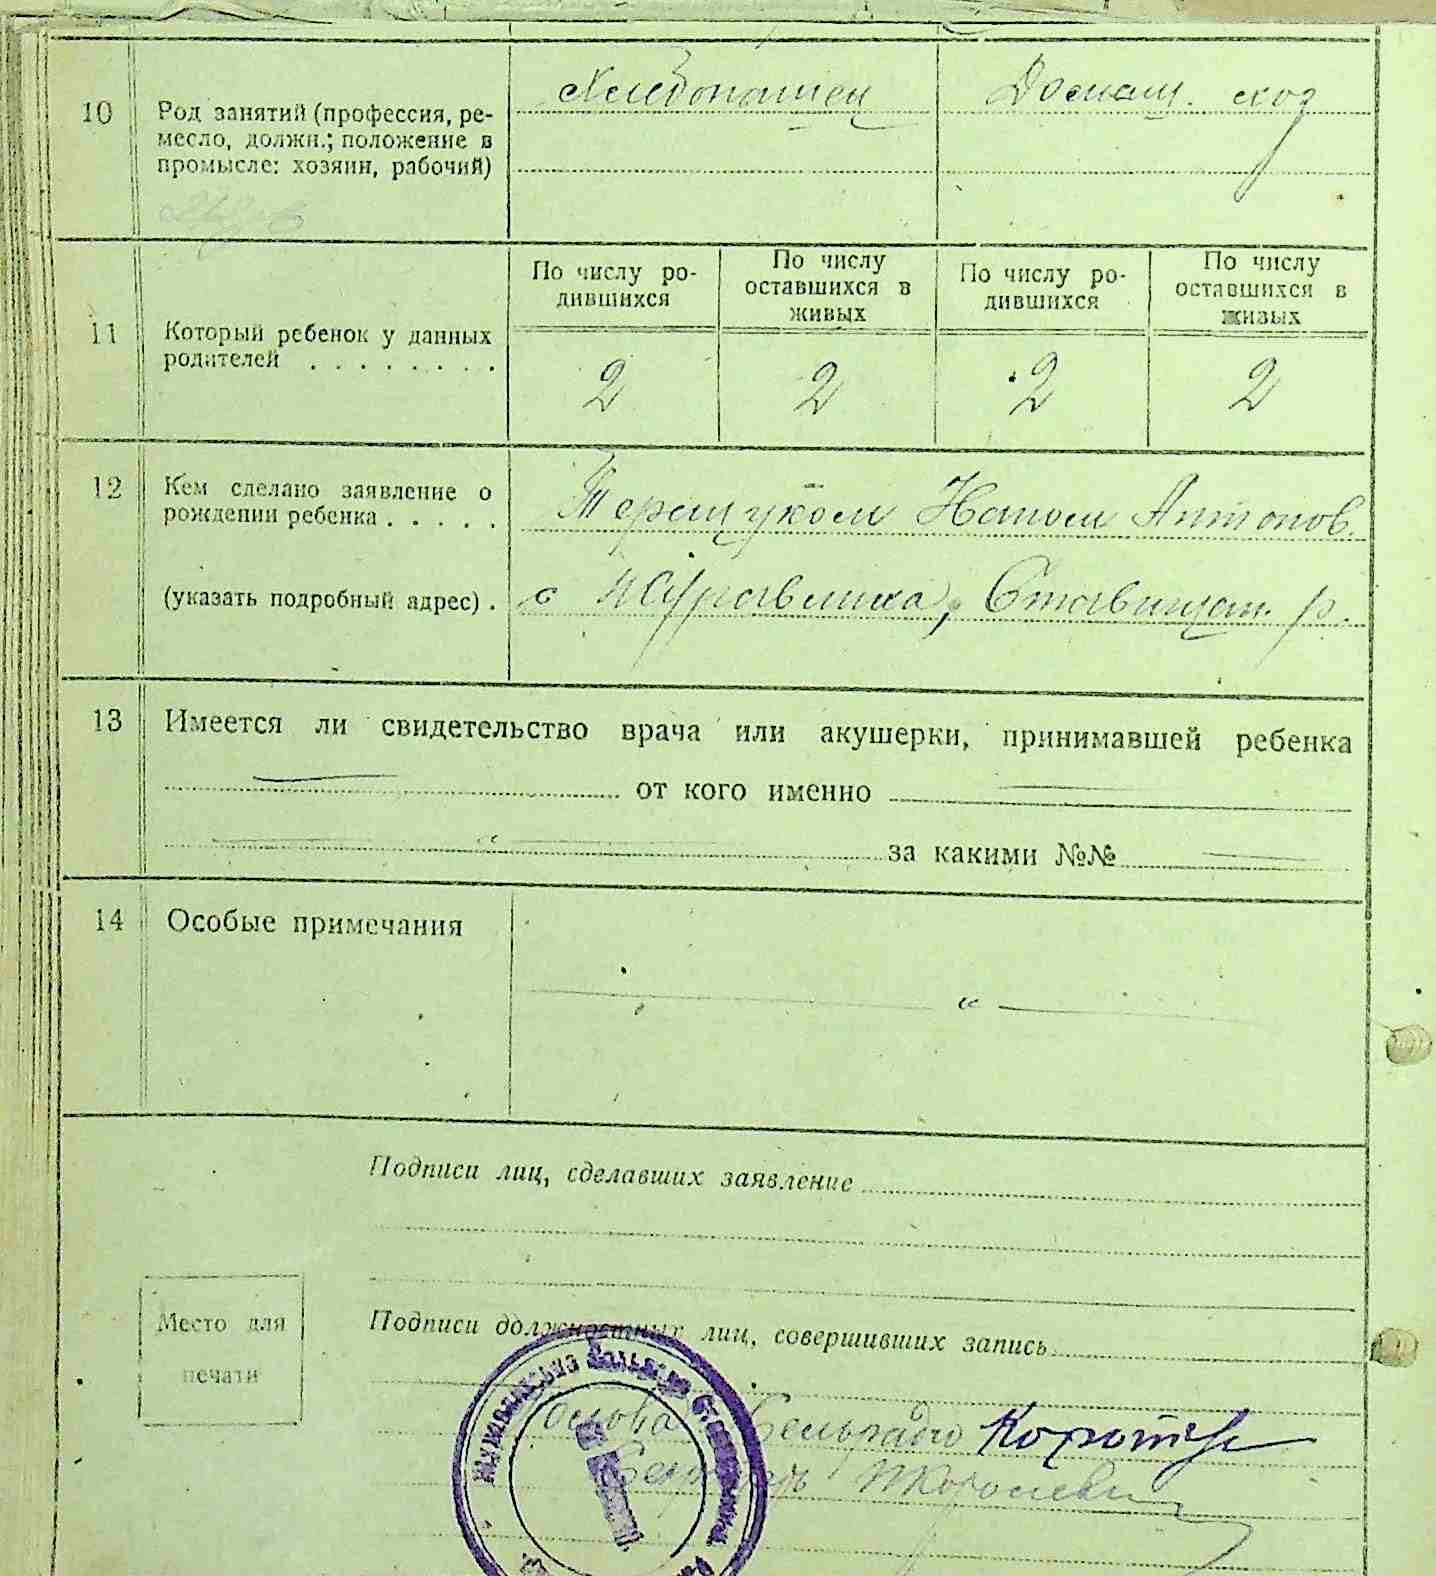 10
Род занятий (профессия, ре-
месло, должн.; положение в
промысле: хозяин, рабочий)
Хлебопашец
Домаш. хоз
11
Который ребенок у данных
родителей . . . . . . . .
По числу ро-
дившихся
По числу
оставшихся в
живых
По числу ро-
дившихся
По числу
оставшихся в
живых
2 2 2 2
12
Кем сделано заявление о
рождении ребенка . . . . .
(указать подробный адрес) .
Терещуком Антонов.
с Журавлиха, Ставищан. р.
13
Имеется ли свидетельство врача или акушерки, принимавшей ребенка
от кого именно
за какими №№
14
Особые примечания
Подписи лиц, сделавших заявление
Место для
печати
Подписи должностных лиц, совершивших запись
Голова Сельради
Секретар